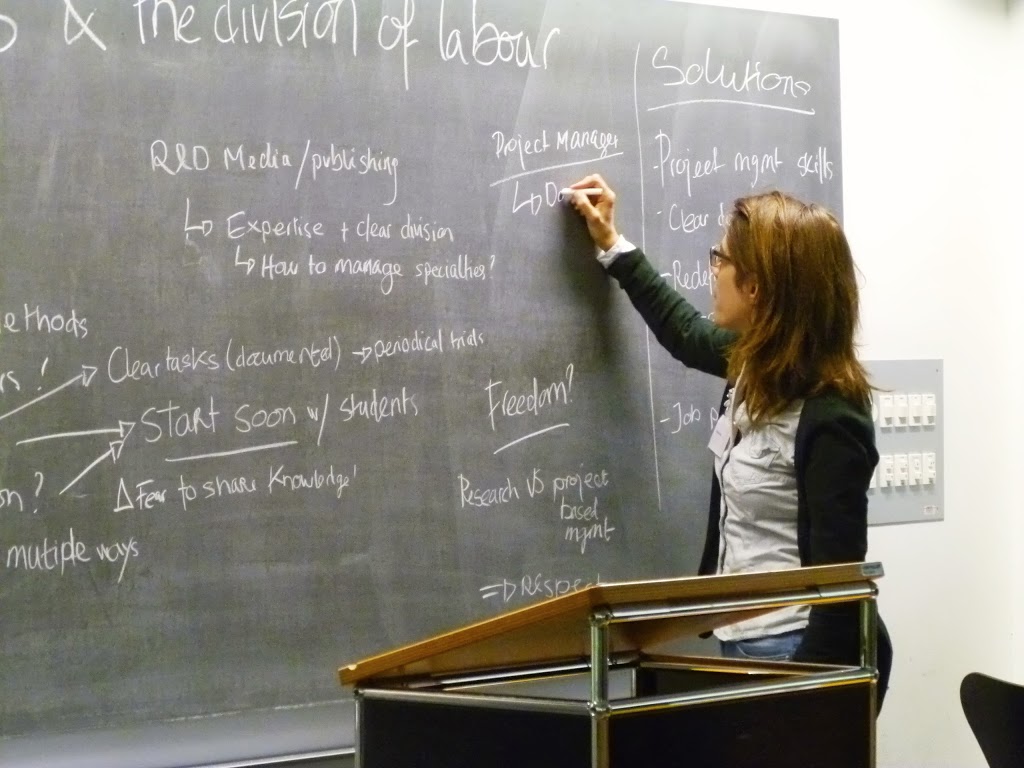 & the division of labour
R&D Media/publishing
↳ Expertise + clear division
↳ How to manage specialties?
ethods
Clear tasks (documented) → periodical trials
rs!
START SOON w/ students
on?
Δ Fear to share Knowledge!
mutiple ways
Project Manager
↳ Do
Freedom?
Research VS project
based
mgmt
⇒ REspect
Solutions
- Project mgmt skills
- Clear d
- Redef
- Job p